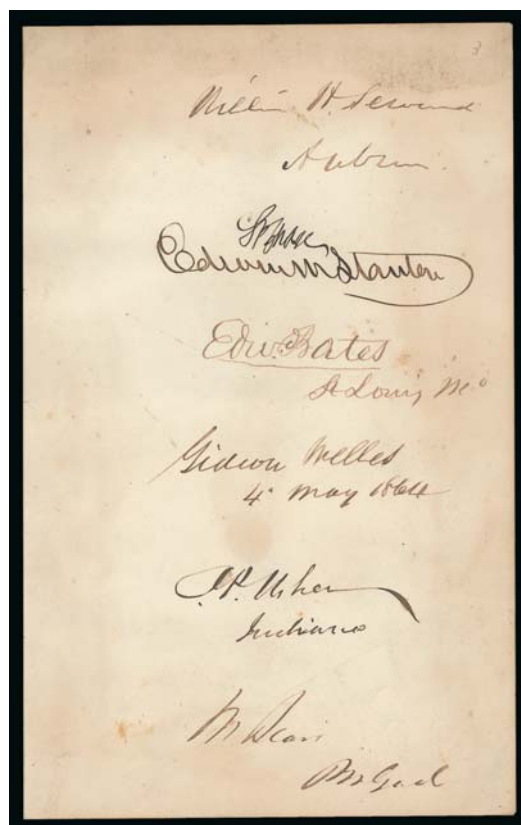 3
William H. Seward
Auburn.
Edwin M Stanton
Edw. Bates
St Louis Mo
Gideon Welles
4 May 1864
J. P. Usher
Indiana